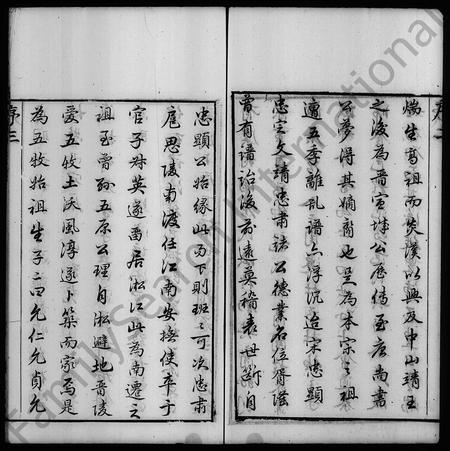 序二
端生寫祖而炎漢以興及中山靖王
之後為晉宣城公歷傳至唐尚書
公夢得其嫡裔也是為本宗之祖
遭五季離亂譜亦浮沉迨宋忠顯
忠定文靖忠肅諸公德業名位胥蔭
前有譜詒後而遠莫稽者世斷自
忠顯公始緣此而下則班班可次忠肅
扈思陵南渡任江南安撫使卒于
官子舛英遂畨居淞江此為南遷之
祖至曾孫五原公理自淞避地晉陵
愛五牧土沃風淳遂卜築而家焉是
為五牧始祖生子二四允仁允貞允
序三
FamilySearch International